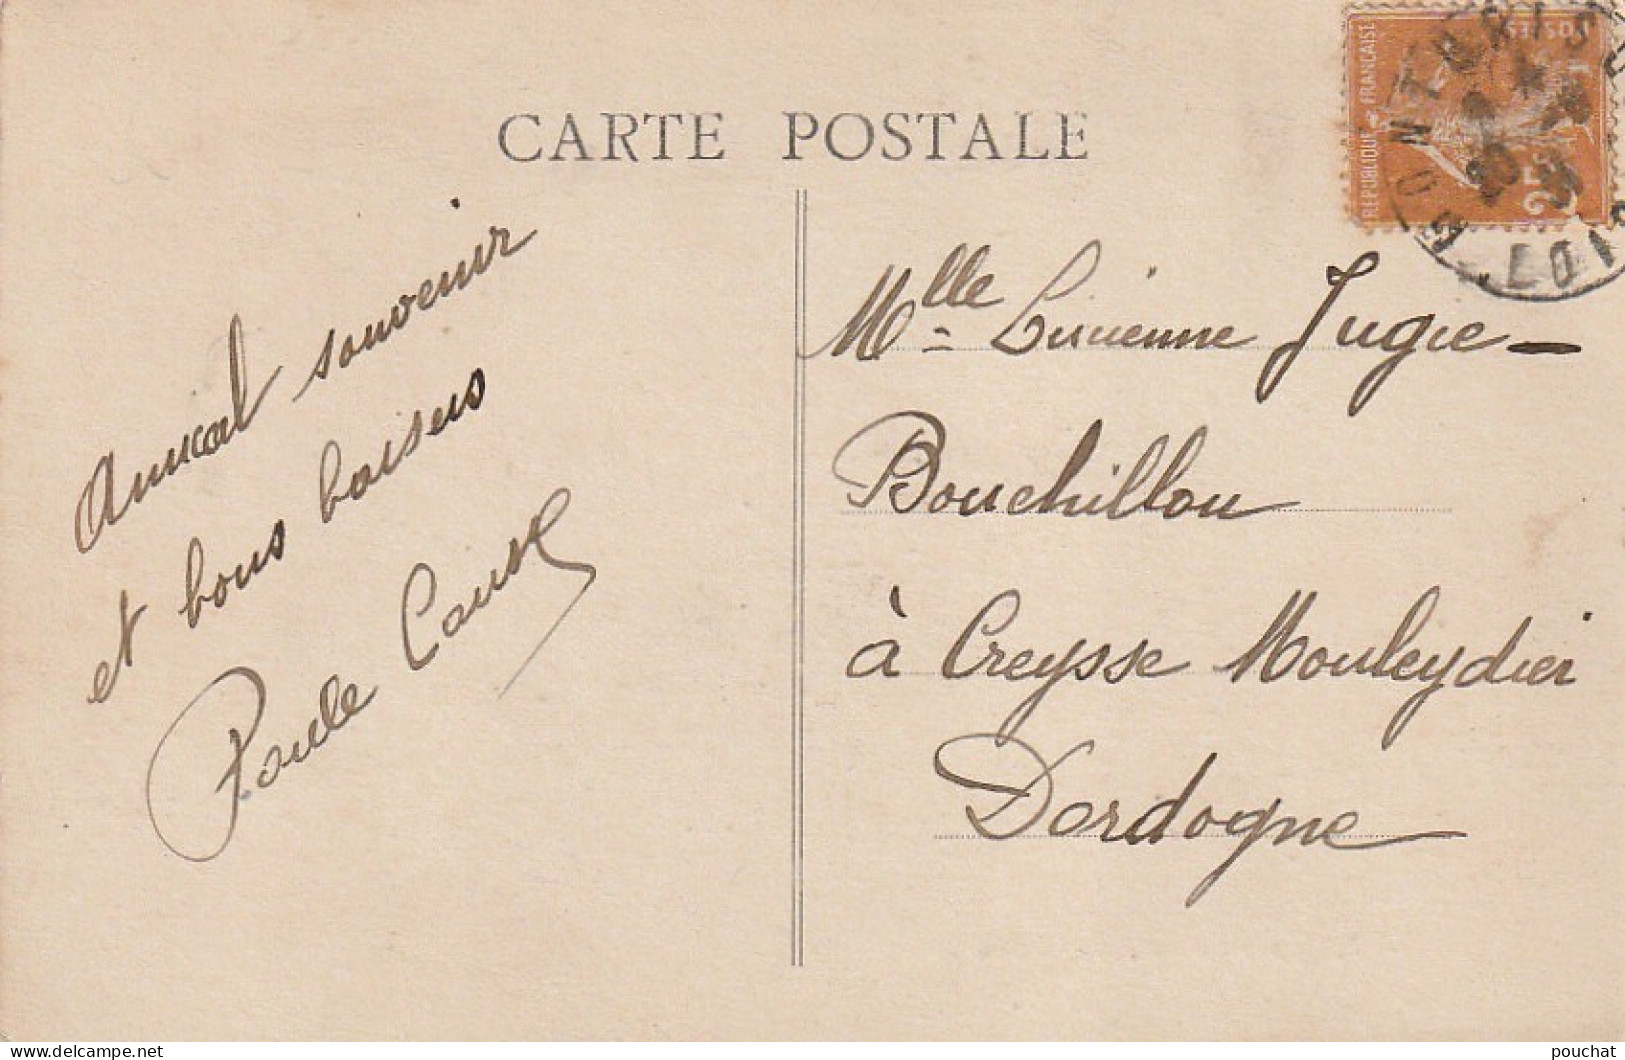 CARTE POSTALE
Amical souvenir
et bons baisers
Paule Causse
Mlle Lucienne Jugie
Bouchillou
à Creysse Mouleydier
Dordogne
REPUBLIQUE FRANÇAISE
POSTES
25
MONTCRIS
LOT
delcampe.net
pouchat